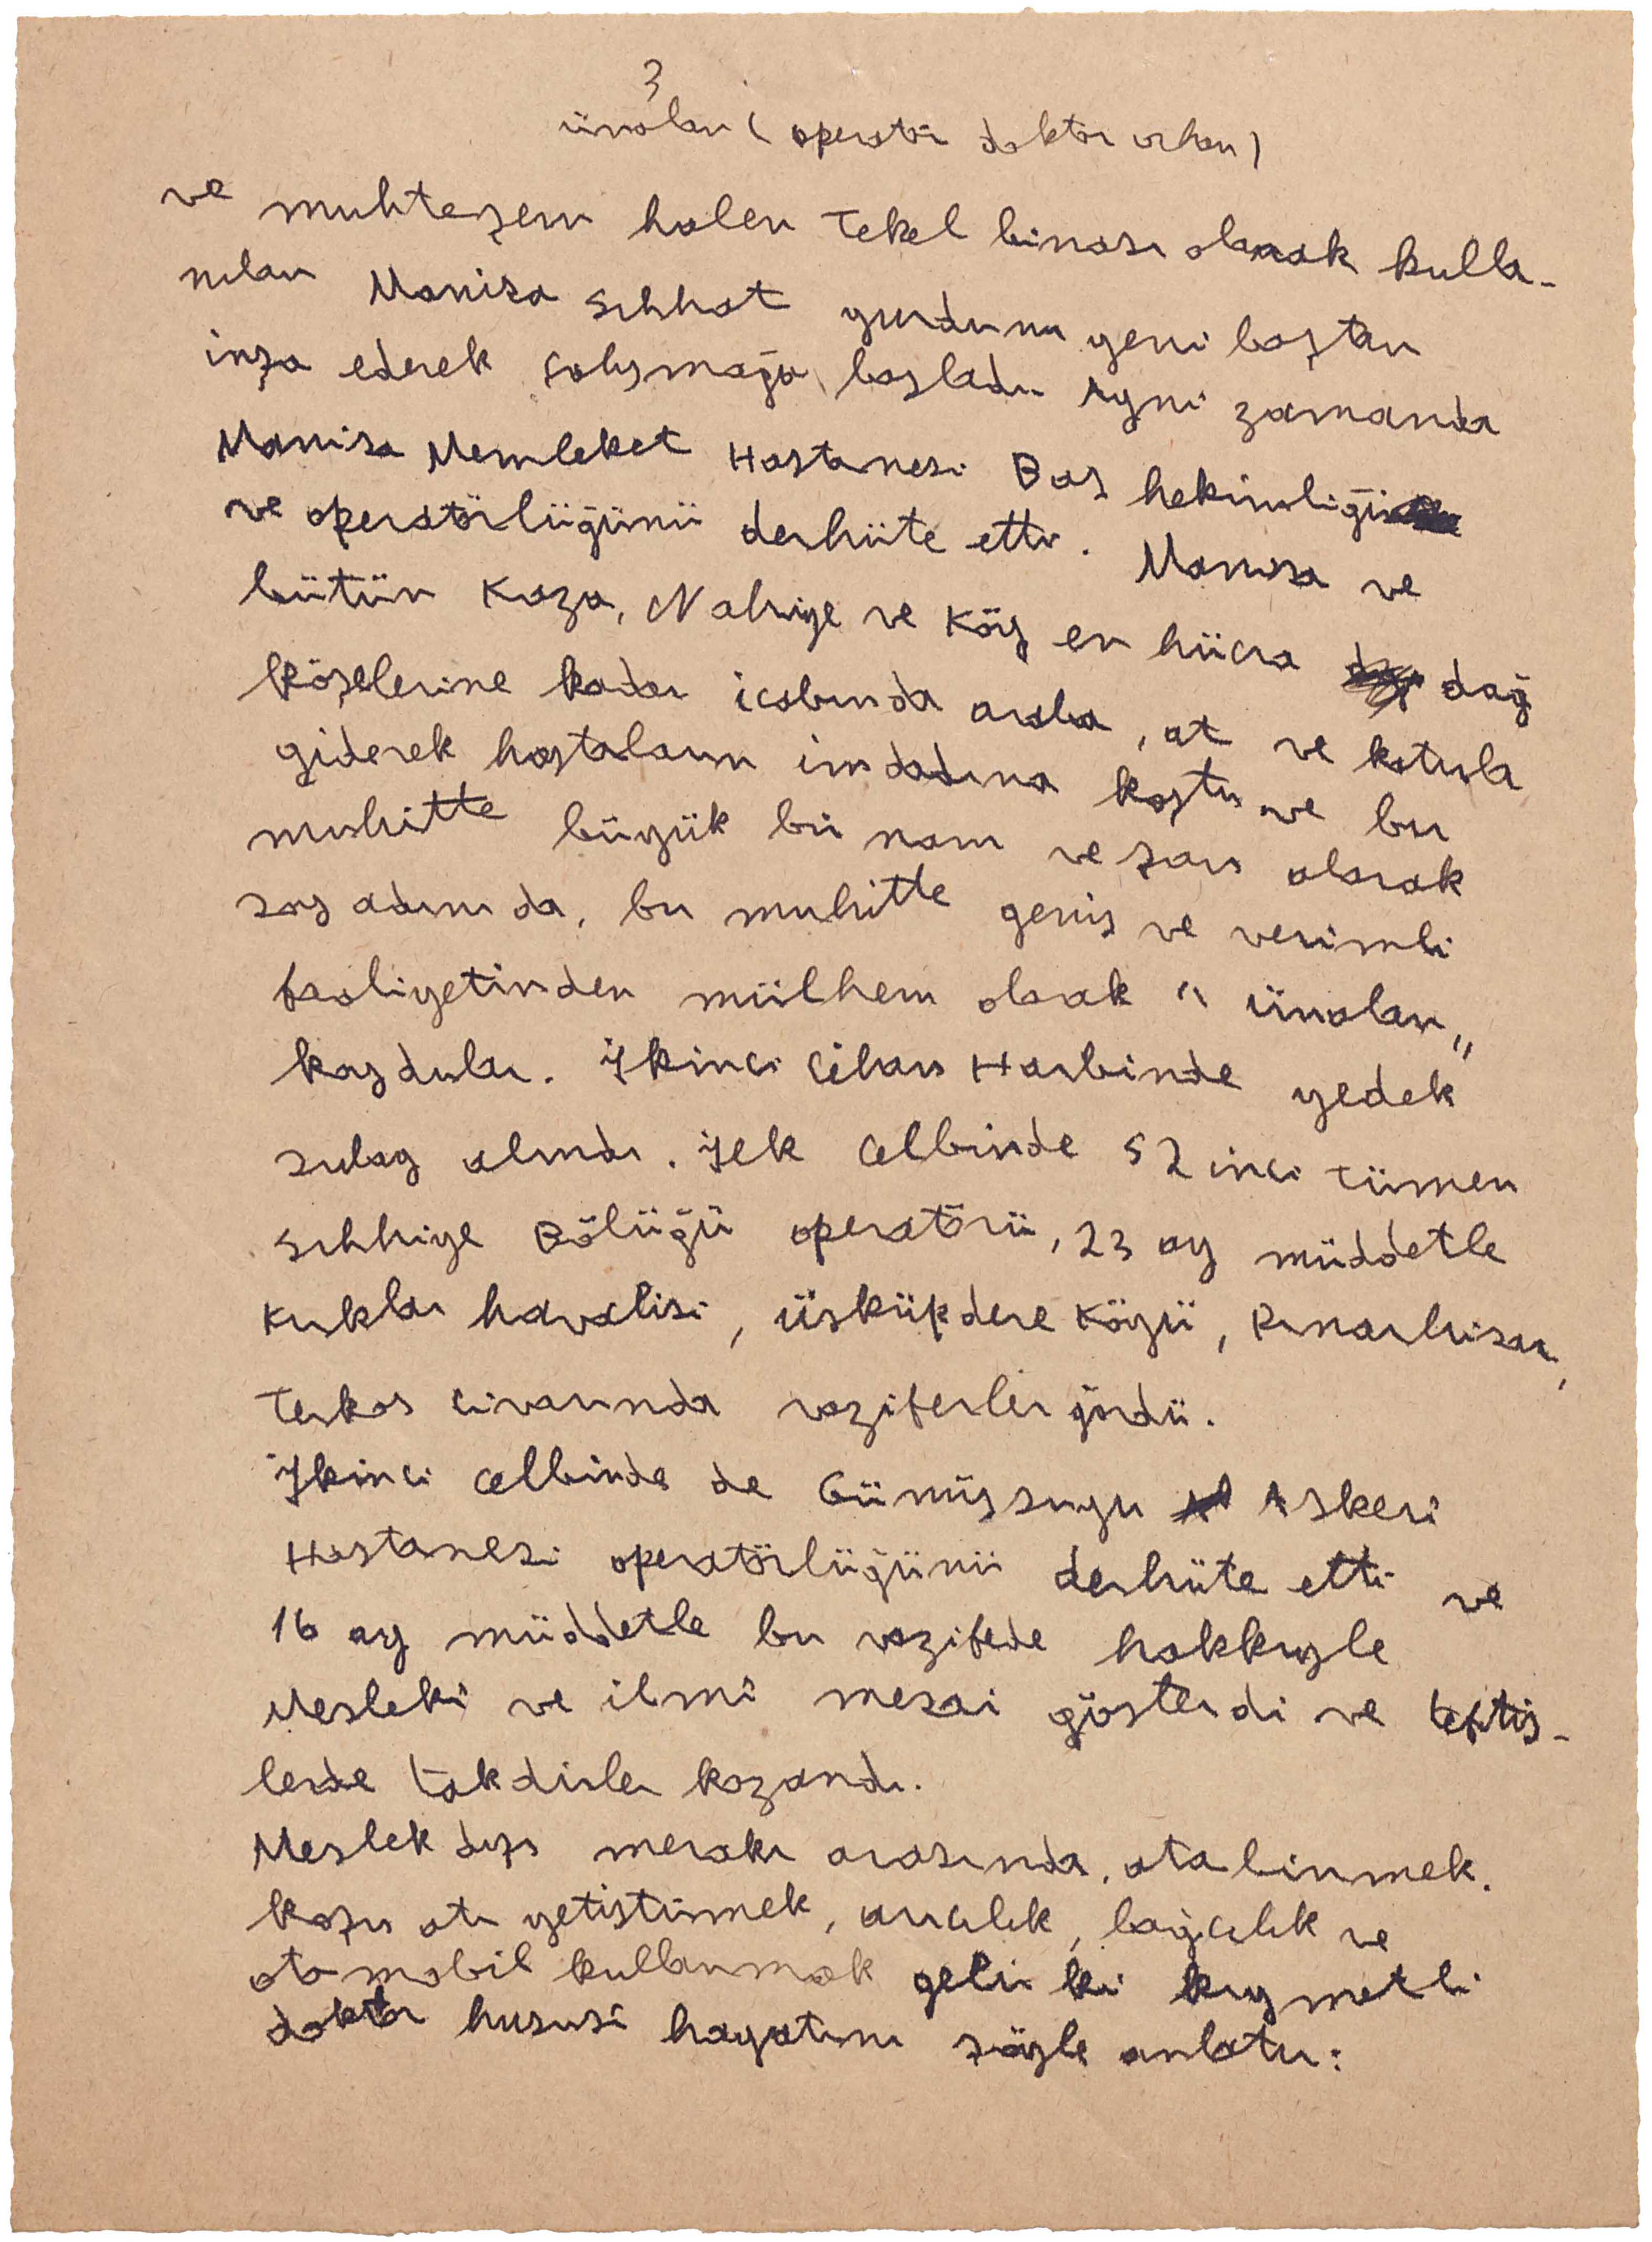 3
ünalan ( operatör doktor orhan )
ve muhteşem halen Tekel binası olarak kulla-
nılan Manisa Sıhhat yurdunu yeni baştan
inşa ederek çalışmağa başladı Ayni zamanda
Manisa Memleket Hastanesi Baş hekimliği
ve operatörlüğünü derhüte etti. Manisa ve
bütün Kaza, Nahiye ve Köy en hücra dağ
köşelerine kadar icabında araba, at ve katırla
giderek hastaların imdadına koştu ve bu
muhitte büyük bir nam ve şan alarak
soy adınıda, bu muhitte geniş ve verimli
faaliyetinden mülhem olarak " ünalan "
koydular. İkinci Cihan Harbinde yedek
subay alındı. İlk celbinde 52 inci Tümen
Sıhhiye Bölüğü operatörü, 23 ay müddetle
Kırklar havalisi, üsküpdere Köyü, Pınarhisar,
Terkos civarında vazifeler gördü.
İkinci celbinde de Gümüşsuyu Askeri
Hastanesi operatörlüğünü derhüte etti ve
16 ay müddetle bu vazifede hakkıyle
Mesleki ve ilmi mesai gösterdi ve teftiş-
lerde takdirler kazandı.
Meslek dışı merakı arasında, ata binmek,
koşu atı yetiştirmek, avcılık, bağcılık ve
otomobil kullanmak gelir ki kıymetli
doktor hususi hayatını şöyle anlatır: